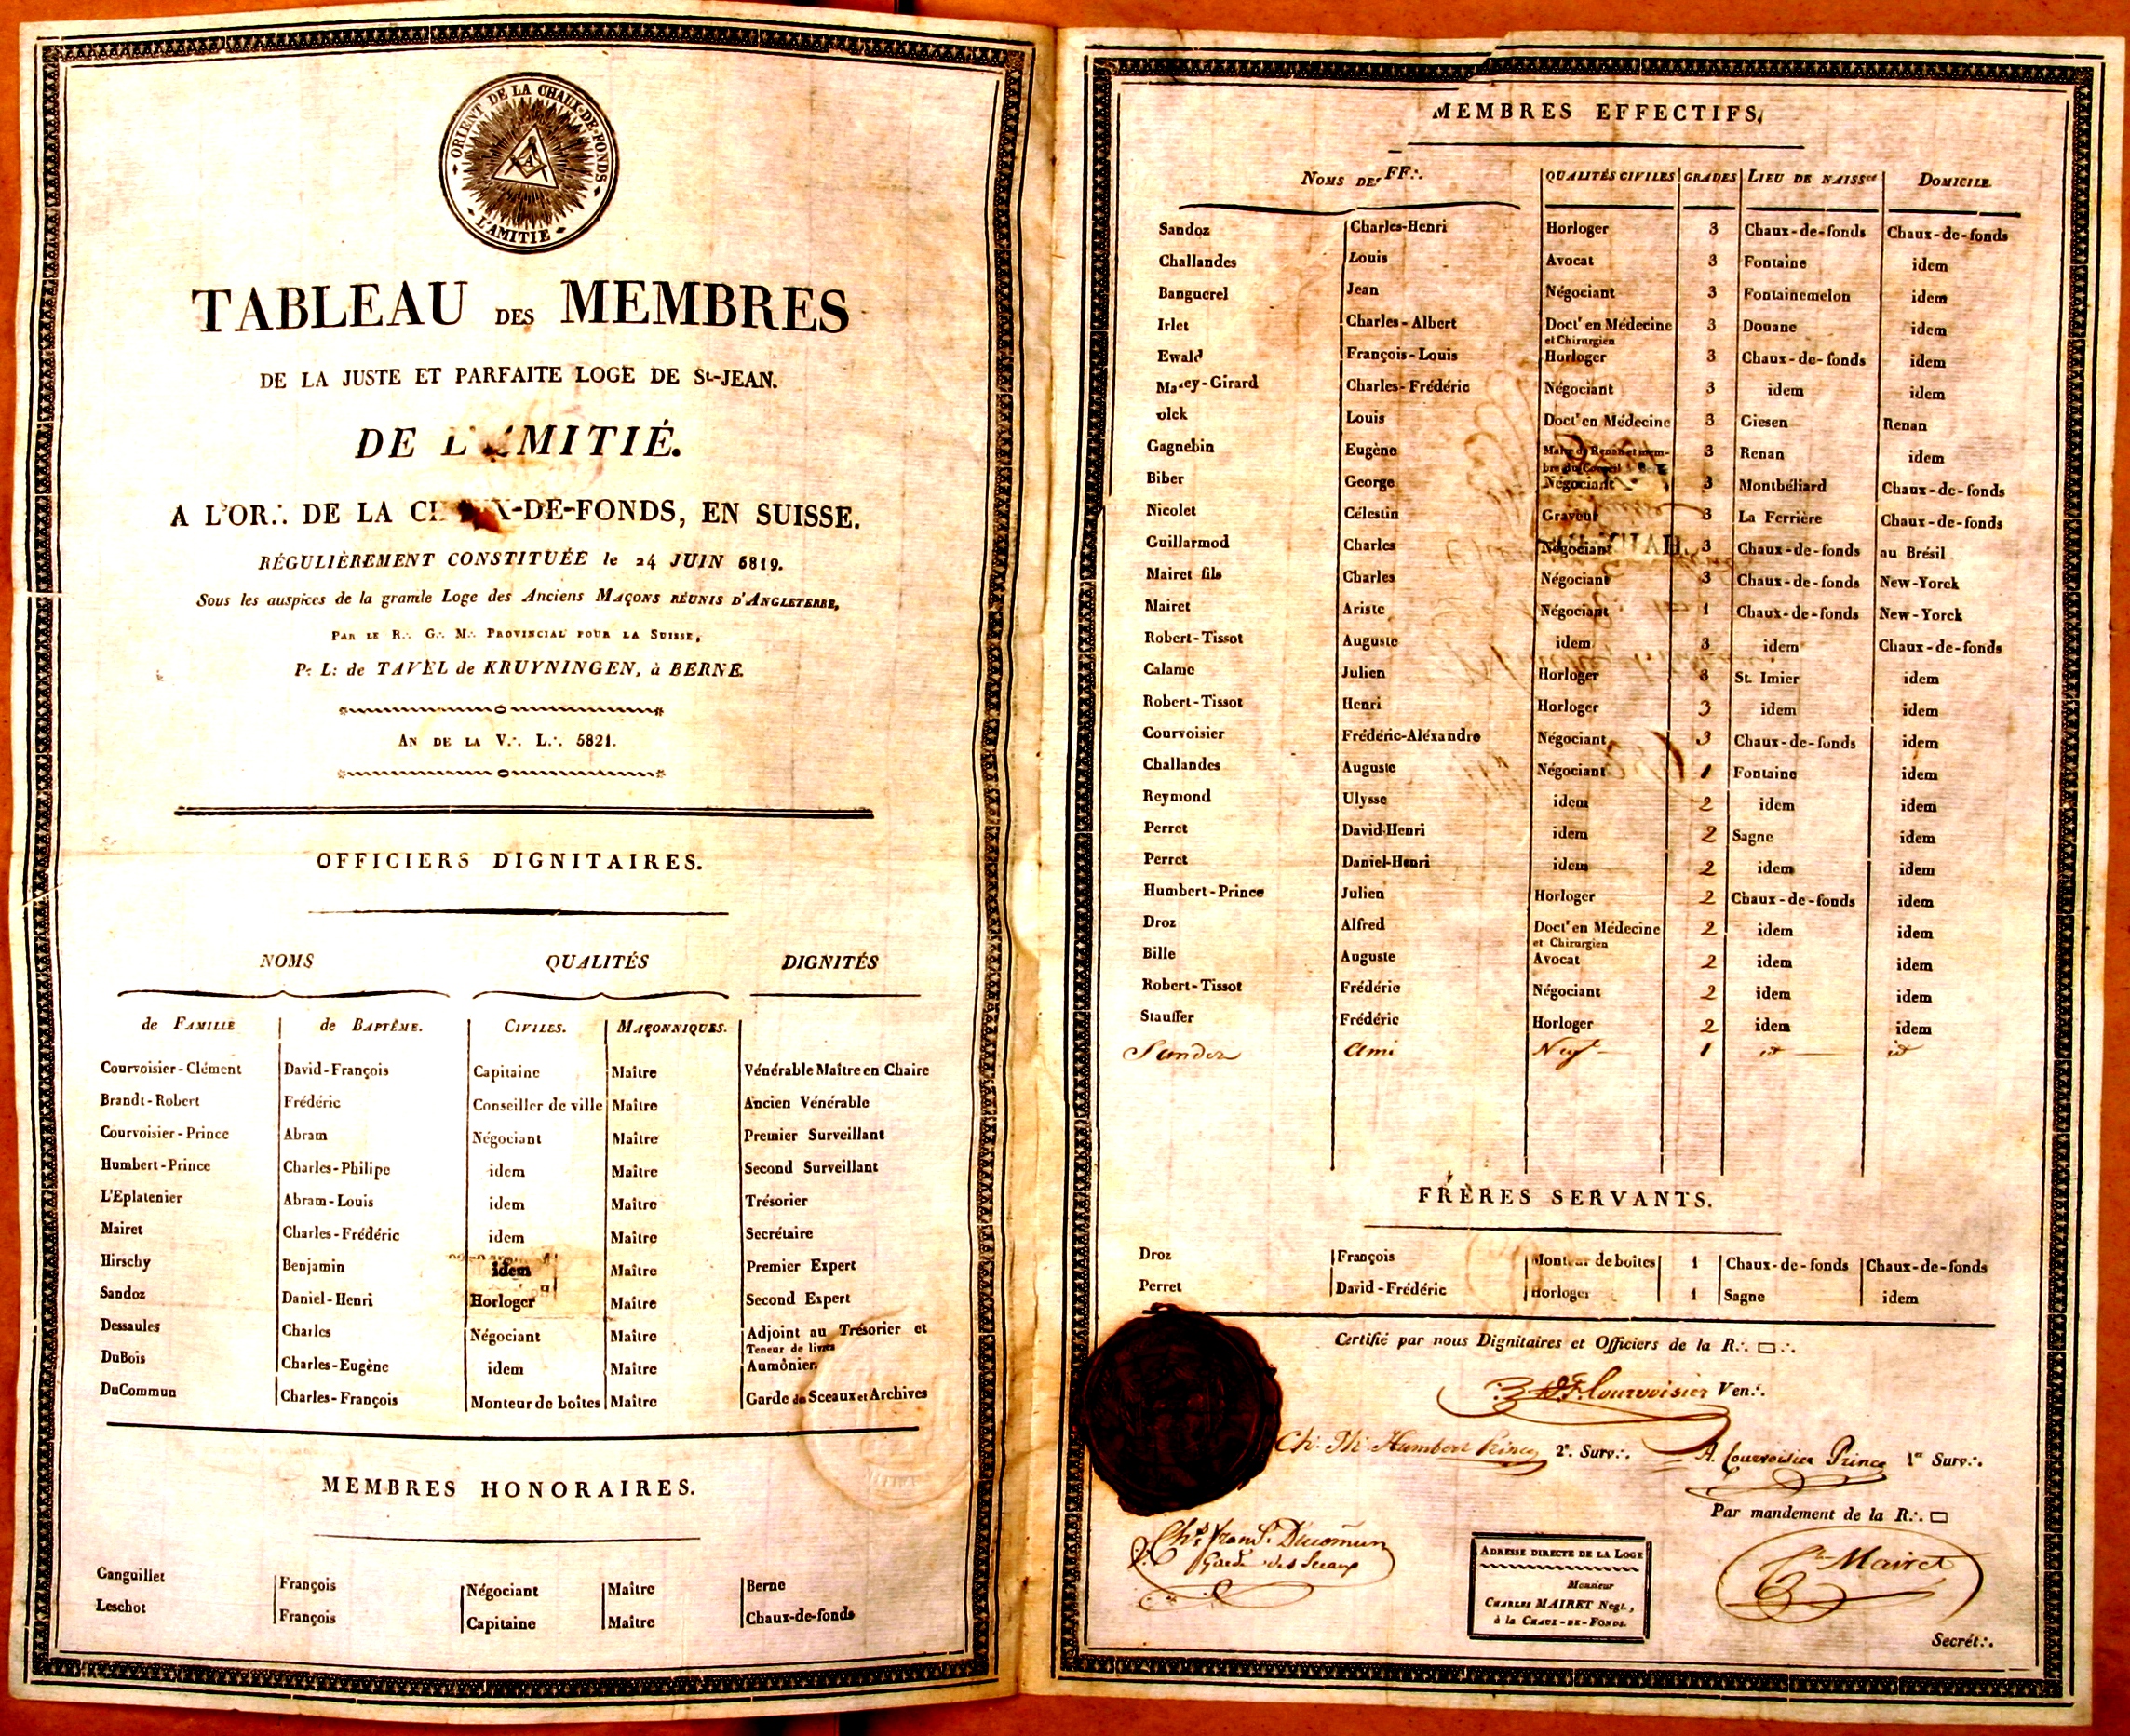 ORIENT DE LA CHAUX-DE-FONDS
L'AMITIE
A
TABLEAU DES MEMBRES
DE LA JUSTE ET PARFAITE LOGE DE St-JEAN.
DE L' MITIÉ.
A L'OR∴ DE LA C X-DE-FONDS, EN SUISSE.
RÉGULIÈREMENT CONSTITUÉE le 24 JUIN 5819.
Sous les auspices de la grande Loge des Anciens MAÇONS RÉUNIS D'ANGLETERRE,
PAR LE R∴ G∴ M∴ PROVINCIAL POUR LA SUISSE,
P: L: de TAVEL de KRUYNINGEN, à BERNE.
AN DE LA V∴ L∴ 5821.
OFFICIERS DIGNITAIRES.
NOMS QUALITÉS DIGNITÉS
de FAMILLE de BAPTÊME. CIVILES. MAÇONNIQUES.
Courvoisier-Clément David-François Capitaine Maître Vénérable Maître en Chaire
Brandt-Robert Frédéric Conseiller de ville Maître Ancien Vénérable
Courvoisier-Prince Abram Négociant Maître Premier Surveillant
Humbert-Prince Charles-Philipe idem Maître Second Surveillant
L'Eplatenier Abram-Louis idem Maître Trésorier
Mairet Charles-Frédéric idem Maître Secrétaire
Hirschy Benjamin idem Maître Premier Expert
Sandoz Daniel-Henri Horloger Maître Second Expert
Dessaules Charles Négociant Maître Adjoint au Trésorier et
Teneur de livres
DuBois Charles-Eugène idem Maître Aumônier
DuCommun Charles-François Monteur de boîtes Maître Garde de Sceaux et Archives
MEMBRES HONORAIRES.
Ganguillet François Négociant Maître Berne
Leschot François Capitaine Maître Chaux-de-fonds
MEMBRES EFFECTIFS.
NOMS DES FF∴ QUALITÉS CIVILES GRADES LIEU DE NAISSce DOMICILE
Sandoz Charles-Henri Horloger 3 Chaux-de-fonds Chaux-de-fonds
Challandes Louis Avocat 3 Fontaine idem
Banguerel Jean Négociant 3 Fontainemelon idem
Irlet Charles-Albert Doctr en Médecine 3 Douane idem
et Chirurgien
Ewald François-Louis Horloger 3 Chaux-de-fonds idem
-Girard Charles-Frédéric Négociant 3 idem idem
olck Louis Doctr en Médecine 3 Giesen Renan
Gagnebin Eugène Maire de Renan et mem- 3 Renan idem
bre du Conseil
Biber George Négociant 3 Montbéliard Chaux-de-fonds
Nicolet Célestin Graveur 3 La Ferrière Chaux-de-fonds
Guillarmod Charles Négociant 3 Chaux-de-fonds au Brésil
Mairet fils Charles Négociant 3 Chaux-de-fonds New-Yorck
Mairet Ariste Négociant 1 Chaux-de-fonds New-Yorck
Robert-Tissot Auguste idem 3 idem Chaux-de-fonds
Calame Julien Horloger 3 St. Imier idem
Robert-Tissot Henri Horloger 3 idem idem
Courvoisier Fréderic-Aléxandre Négociant 3 Chaux-de-fonds idem
Challandes Auguste Négociant 1 Fontaine idem
Reymond Ulysse idem 2 idem idem
Perret David-Henri idem 2 Sagne idem
Perret Daniel-Henri idem 2 idem idem
Humbert-Prince Julien Horloger 2 Chaux-de-fonds idem
Droz Alfred Doctr en Médecine 2 idem idem
et Chirurgien
Bille Auguste Avocat 2 idem idem
Robert-Tissot Frédéric Négociant 2 idem idem
Stauffer Frédéric Horloger 2 idem idem
Sandoz Ami Negt 1 id id
FRÈRES SERVANTS.
Droz François Monteur de boîtes 1 Chaux-de-fonds Chaux-de-fonds
Perret David-Frédéric Horloger 1 Sagne idem
Certifié par nous Dignitaires et Officiers de la R∴ □∴
D.F. Courvoisier Ven∴
Ch. Ph. Humbert Prince 2e. Surv∴ A. Courvoisier Prince 1er Surv∴
Par mandement de la R∴ □
Chs franc. Ducomun
Garde des Sceaux
ADRESSE DIRECTE DE LA LOGE
Monsieur
CHARLES MAIRET Negt.,
à la CHAUX-DE-FONDS.
Mairet
Secrét∴